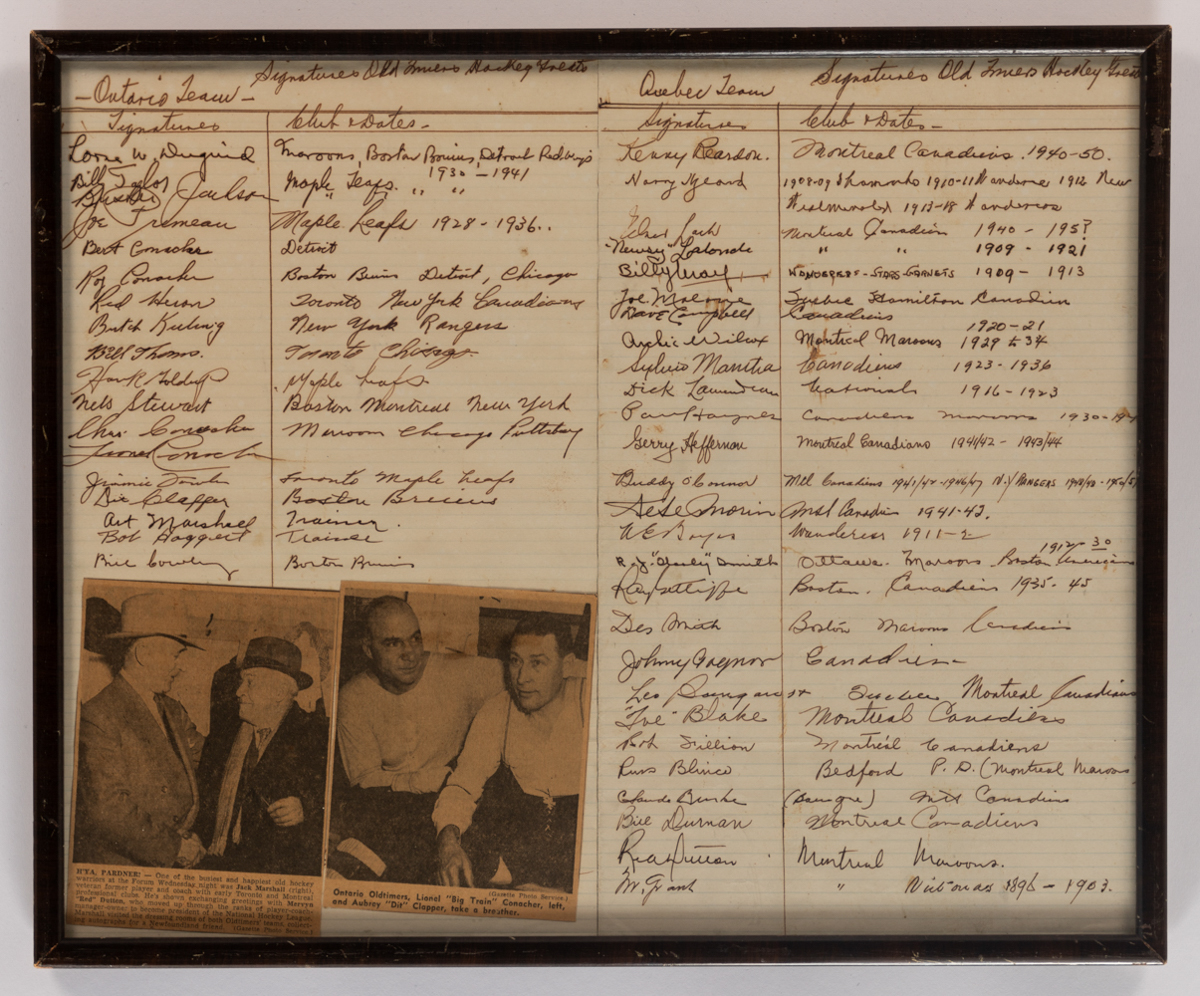 Signatures Old Timers Hockey Greats
—Ontario Team—
Signatures Club & Dates—
Lorne W. Duguid Maroons, Boston Bruins, Detroit Redwings
1930 — 1941
Bill Taylor Maple Leafs.
Busher Jackson " " "
Joe Primeau Maple Leafs 1928 - 1936..
Bert Conacher Detroit
Roy Conacher Boston Bruins Detroit, Chicago
Red Heron Toronto New York Canadians
Butch Keeling New York Rangers
Bill Thoms. Toronto Chicago
Hank Goldup Maple Leafs.
Nels Stewart Boston Montreal New York
Chas. Conacher
Lionel Conacher Maroons Chicago Pittsburg
Jimmie Fowler Toronto Maple Leafs
Dit Clapper Boston Bruins
Art Marshall Trainer.
Bob Haggert Trainer
Bill Cowley Boston Bruins
H'YA, PARDNER! — One of the busiest and happiest old hockey
warriors at the Forum Wednesday night was Jack Marshall (right),
veteran former player and coach with early Toronto and Montreal
professional clubs. He's shown exchanging greetings with Mervyn
"Red" Dutton, who moved up through the ranks of player-coach-
manager-owner to become president of the National Hockey League.
Marshall visited the dressing rooms of both Oldtimers' teams, collect-
ing autographs for a Newfoundland friend. (Gazette Photo Service.)
(Gazette Photo Service.)
Ontario Oldtimers, Lionel "Big Train" Conacher, left,
and Aubrey "Dit" Clapper, take a breather.
Signatures Old Timers Hockey Greats
Quebec Team
Signatures Club & Dates—
Kenny Reardon. Montreal Canadiens. 1940-50.
Harry Hyland 1908-09 Shamrocks 1910-11 Wanderers 1912 New
Westminster 1913-18 Wanderers
Elmer Lach Montreal Canadiens 1940 - 195?
"Newsy" Lalonde " " 1909 - 1921
Billy Wanderers-Stars-Garnets 1909 - 1913
Joe Malone Quebec Hamilton Canadien
Dave Campbell Canadiens
1920-21
Archie Wilcox Montreal Maroons 1929 to 34
Sylvio Mantha Canadiens 1923-1936
Dick Nationals 1916-1923
Paul Haynes Canadiens Maroons 1930-
Gerry Heffernan Montreal Canadians 1941/42 - 1943/44
Buddy O'Connor Mtl Canadiens 1941/42-1946/47 N.Y RANGERS
Pete Morin Mtl Canadien 1941-42.
Wanderers 1911-2
R.J. "Hooley" Smith Ottawa. Maroons Boston Americans
Ray Getliffe Boston. Canadiens 1935-45
Des Smith Boston Maroons Canadiens
Johnny Gagnon Canadiens
Leo Bourgault Quebec Montreal Canadians
"Toe" Blake Montreal Canadiens
Bob Fillion Montréal Canadiens
Russ Blinco Bedford P.Q. (Montreal Maroons
Claude Burke Mtl Canadiens
Bill Durnan Montreal Canadiens
Red Dutton Montreal Maroons.
M. Grant " Victorias 1896-1903.